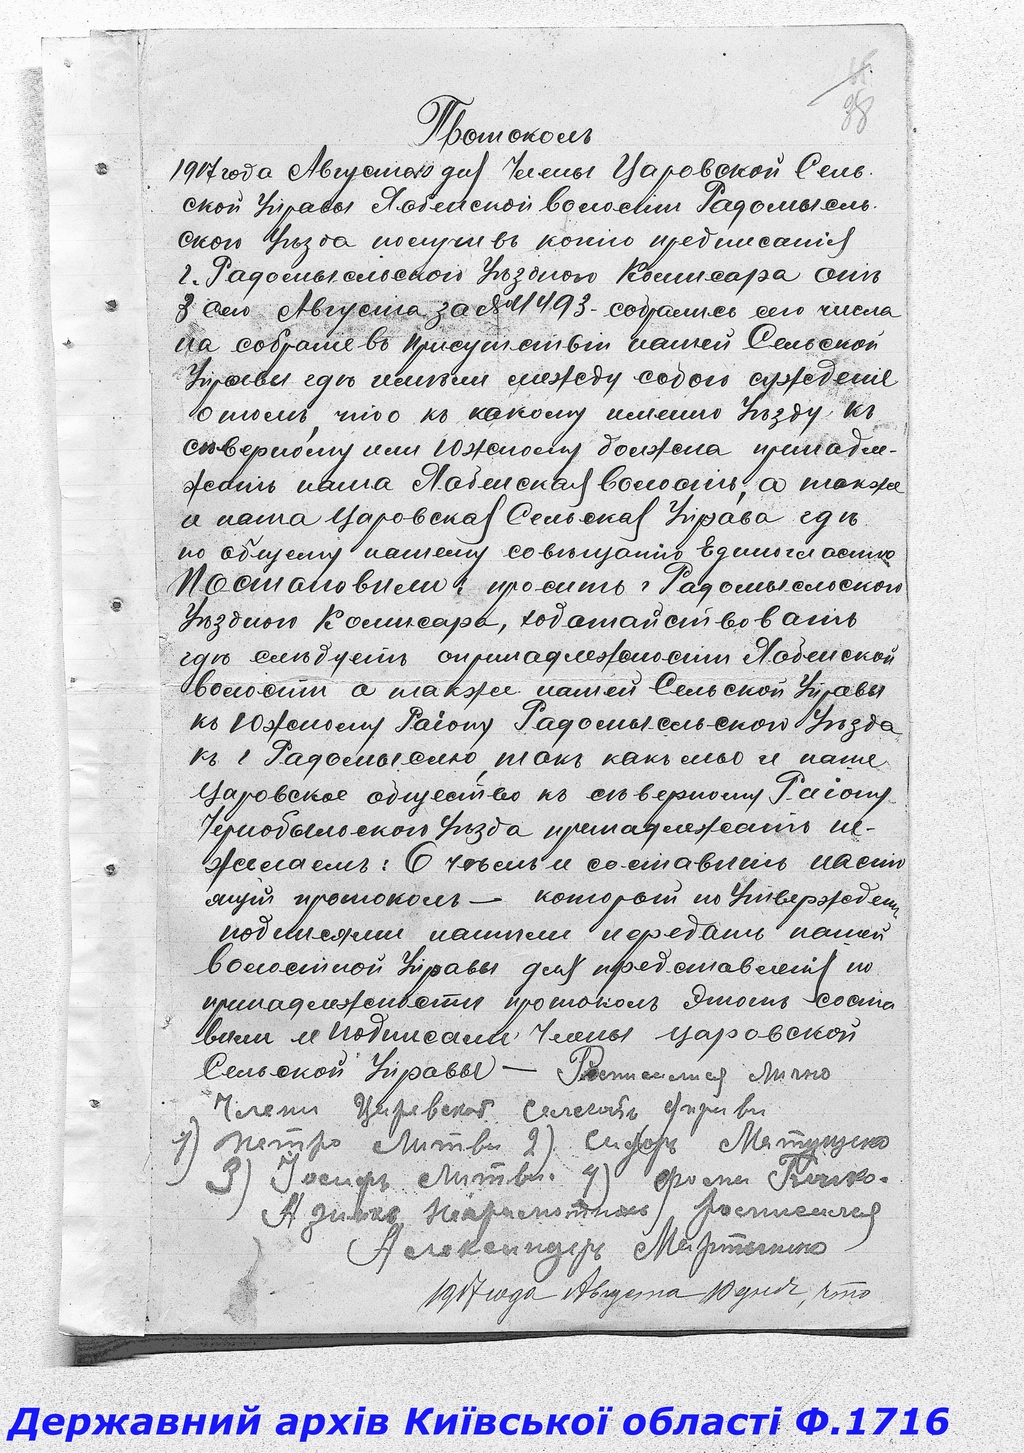 38
Протоколъ
1917 года Августа 10 дня Члены Царовской Сель-
ской Управы Хабенской волости Радомысль-
скою Уѣзда получивъ копію предписанія
г. Радомысльскою Уѣздною Комисара отъ
8 Сею Августа за № 11493 - собрались сею числа
на собраніе въ присутствіи нашей Сельской
Управы гдѣ имѣли между собою сужденіе
о томъ, что къ какому именно Уѣзду къ
сѣверному или Южному должна принадле-
жать наша Хабенская волость, а также
и наша Царовская Сельская Управа гдѣ
по общему нашему совѣщанію Единогласно
Постановили: просить г Радомысльскою
Уѣздною Комисара, ходатайствовать
гдѣ слѣдуетъ опринадлежности Хабенской
волости а также нашей Сельской Управы
къ Южному Раіону Радомысльскою Уѣзда
къ г Радомыслю, такъ какъ мы и наше
Царовское общество къ сѣверному Раіону
Чернобыльскою Уѣзда принадлежать не-
желаемъ: О чемъ и составить насто
ящій протоколъ — который по Утвержден.
подписями нашими передать нашей
Волостной Управы для представленія по
принадлежности протоколъ этотъ соста
вили и Подписали Члены Царовской
Сельской Управы — Росписалися Лично
Члени Царевской Селской Управи
1) Петро Литви 2) Сидоръ Матущенко
3) Іосифъ Литви. 4) Фома
А за ихъ Неграмотныхъ росписался
Александеръ Мартыненко
1917 года Августа 10 дня, что
Державний архів Київської області Ф.1716